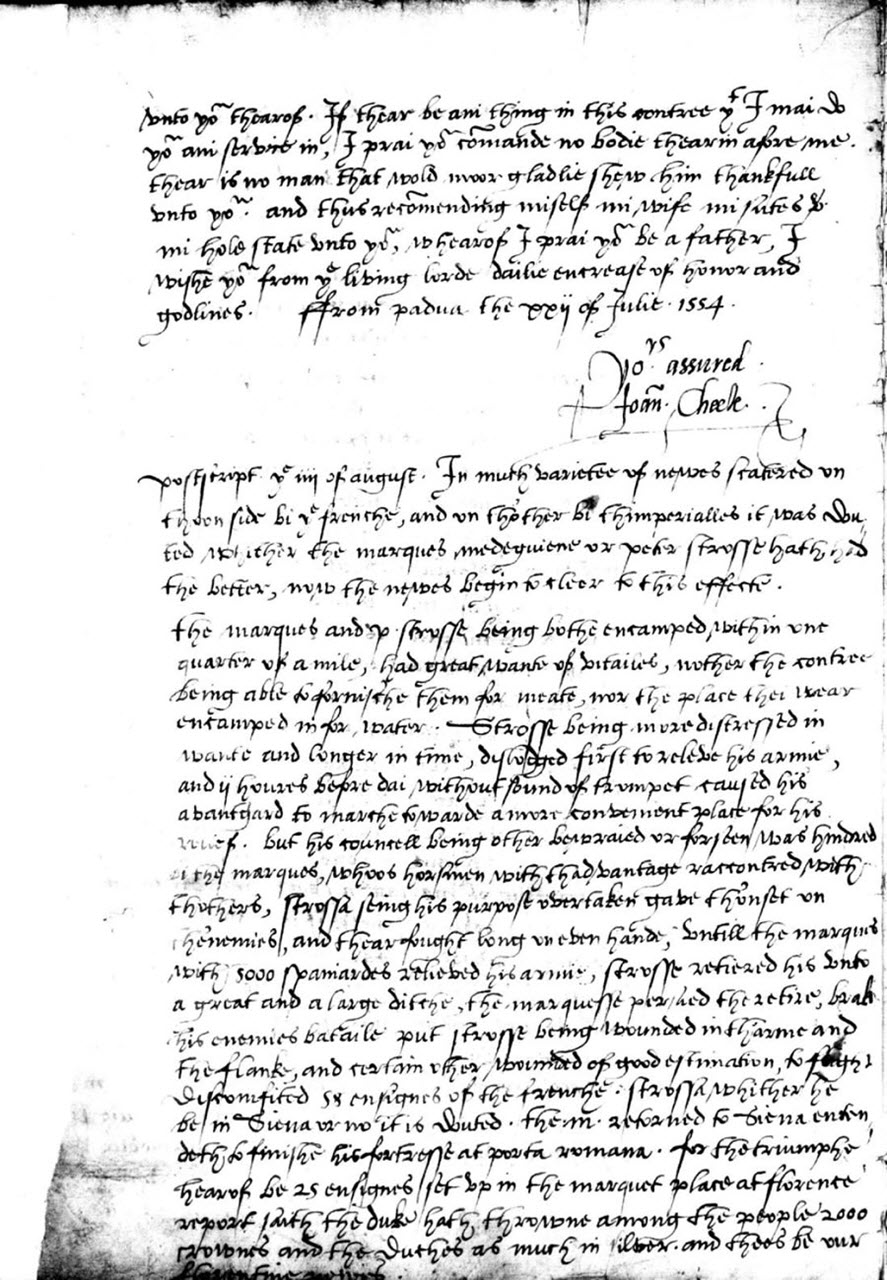 vnto yoʳ thearof. If thear be ani thing in this contree yᵗ I mai do
yoʳ ani service in, I prai yoʷ cōmande no bodie thearin afore me.
thear is no man that wold moor gladlie shew him thankfull
vnto yoʷ. and thus recōmending miself mi wife mi sutes &
mi hole state vnto yoʷ, whearof I prai yoʷ be a father, I
wishe yoʷ from yᵉ living lorde dailie encrease of honor and
godlines. ffrom padua the xxij of Julie. 1554.
Yoʳˢ assured.
Joan. Cheek.
postscript yᵉ iiij of august. In much varietee of newes scatered on
thoon side bi yᵉ frenche, and on thother bi thimperialles it was dou
ted whither the marques medeguiene or peter strosse hath had
the better, now the newes begin to cleer to this effecte.
the marques and p. strosse being bothe encamped within one
quarter of a mile, had great wante of vitailes, nother the contree
being able to fornische them for meate, nor the place thei wear
encamped in for water. Strosse being more distressed in
wante and longer in time, dislodged first to releve his armie,
and ij houres before dai without sound of trompet caused his
avantgard to marche towarde a more convenient place for his
relief. but his councell being other bewraied or forseen was hindred
bi the marques, whoos horsmen with thadvantage racontred with
thothers, strossa seing his purpose overtaken gave thonset on
thenemies, and thear fought long on even hande, vntill the marques
with 5000 spaniardes relieved his armie, strosse retiered his vnto
a great and a large ditche, the marquesse persued the retire, brake
his enemies bataile put strosse being wounded in tharme and
the flanke, and certain other wounded of good estimation, to flight
discomfited 58 ensignes of the frenche. strossa whither he
be in Siena or no it is douted. the m. retorned to Siena enten
deth to finishe his fortresse at porta romana. for the triumphe
hearof be 25 ensignes set vp in the marquet place at florence
report saith the duke hath throwne among the people 2000
crownes and the duches as much in silver. and thees be our
florentine newes.